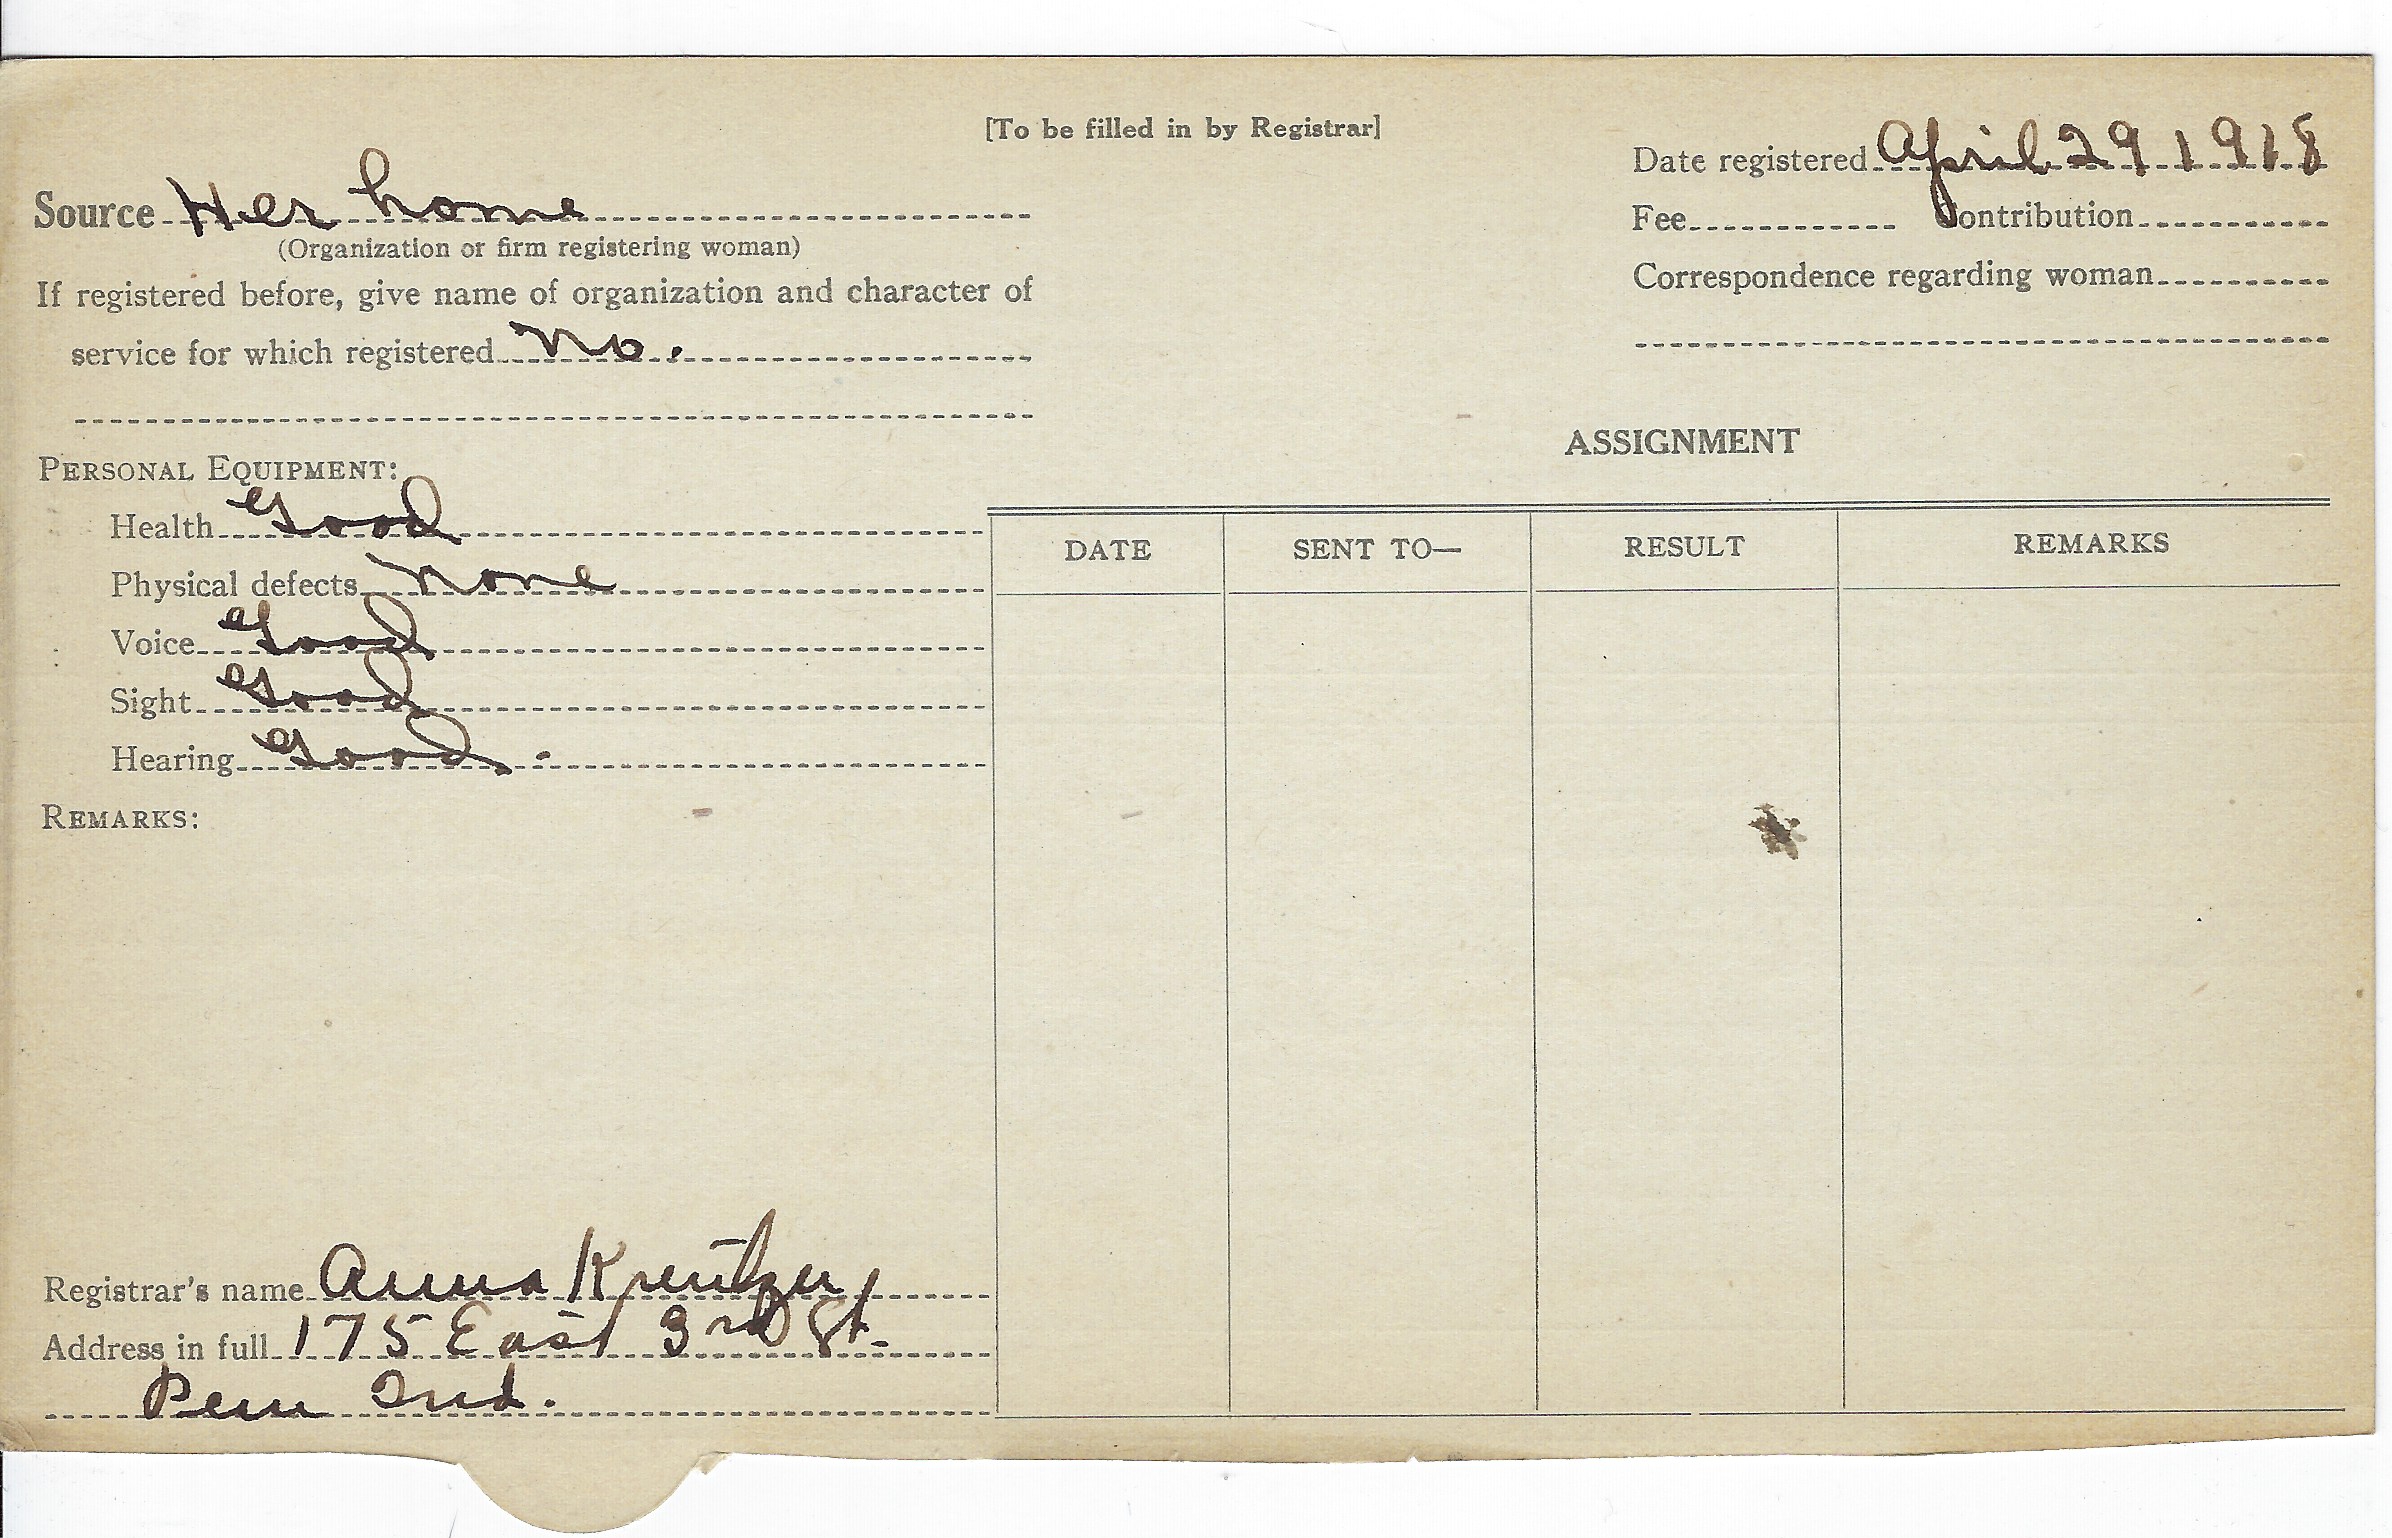 [To be filled in by Registrar]
Date registered April 29 1918
Source Her home
(Organization or firm registering woman)
Fee Contribution
If registered before, give name of organization and character of
Correspondence regarding woman
service for which registered No.
ASSIGNMENT
PERSONAL EQUIPMENT:
Health Good
DATE SENT TO— RESULT REMARKS
Physical defects None
Voice Good
Sight Good
Hearing Good.
REMARKS:
Registrar's name Anna Kreutzer
Address in full 175 East 3rd St.
Peru Ind.